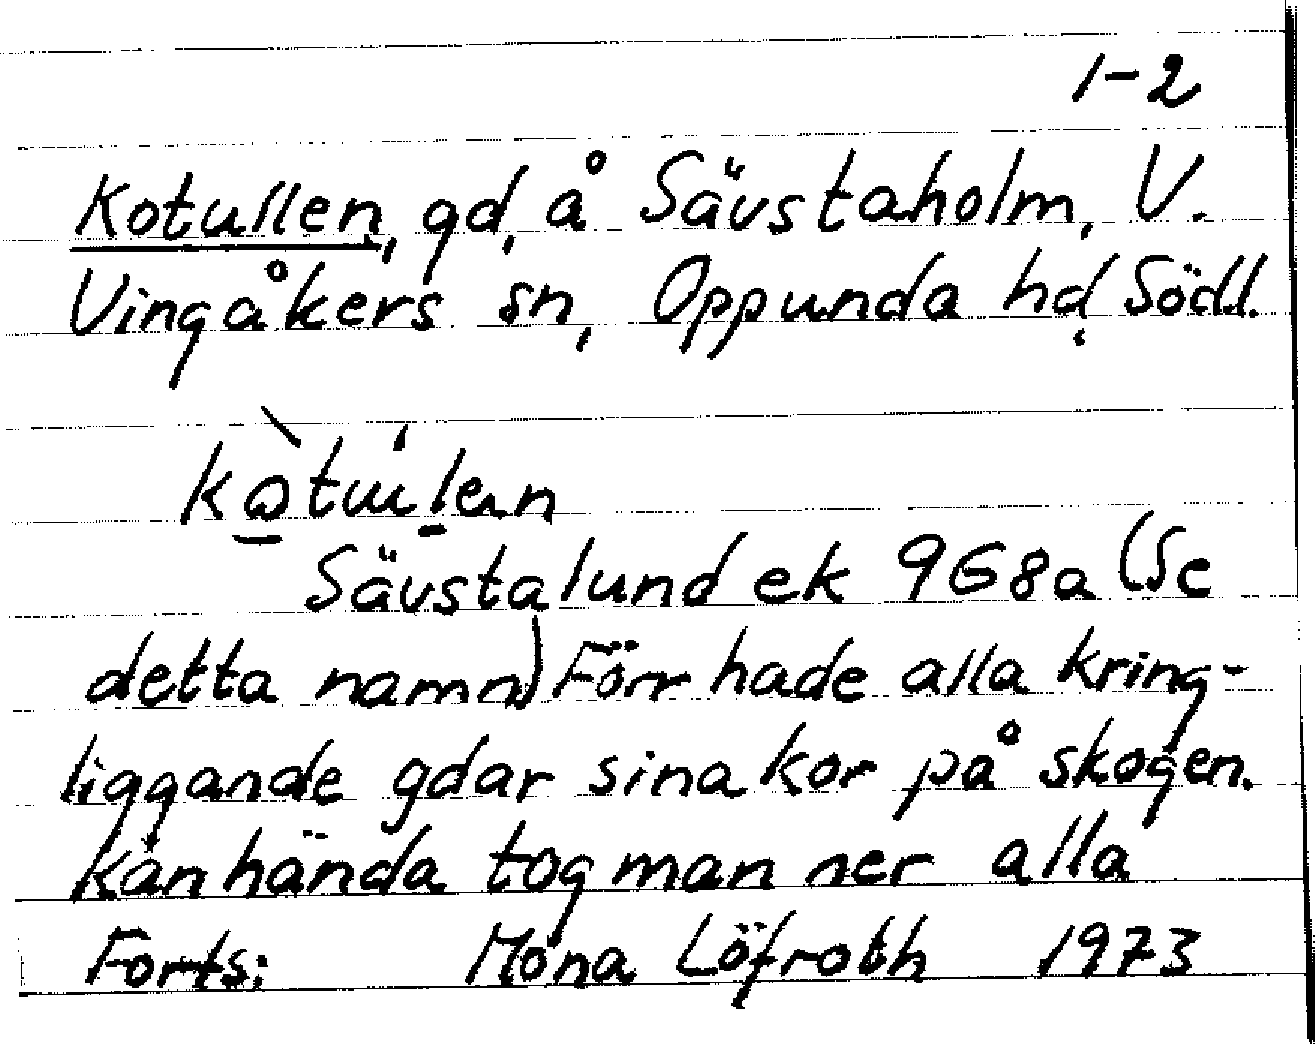 1-2
Kotullen, gd, å Sävstaholm, V.
Vingåkers sn, Oppunda hd, Södl.
Sävstalund ek 968a (Se
detta namn) Förr hade alla kring-
liggande gdar sina kor på skogen.
Kanhända tog man ner alla
Forts: Mona Löfroth 1973